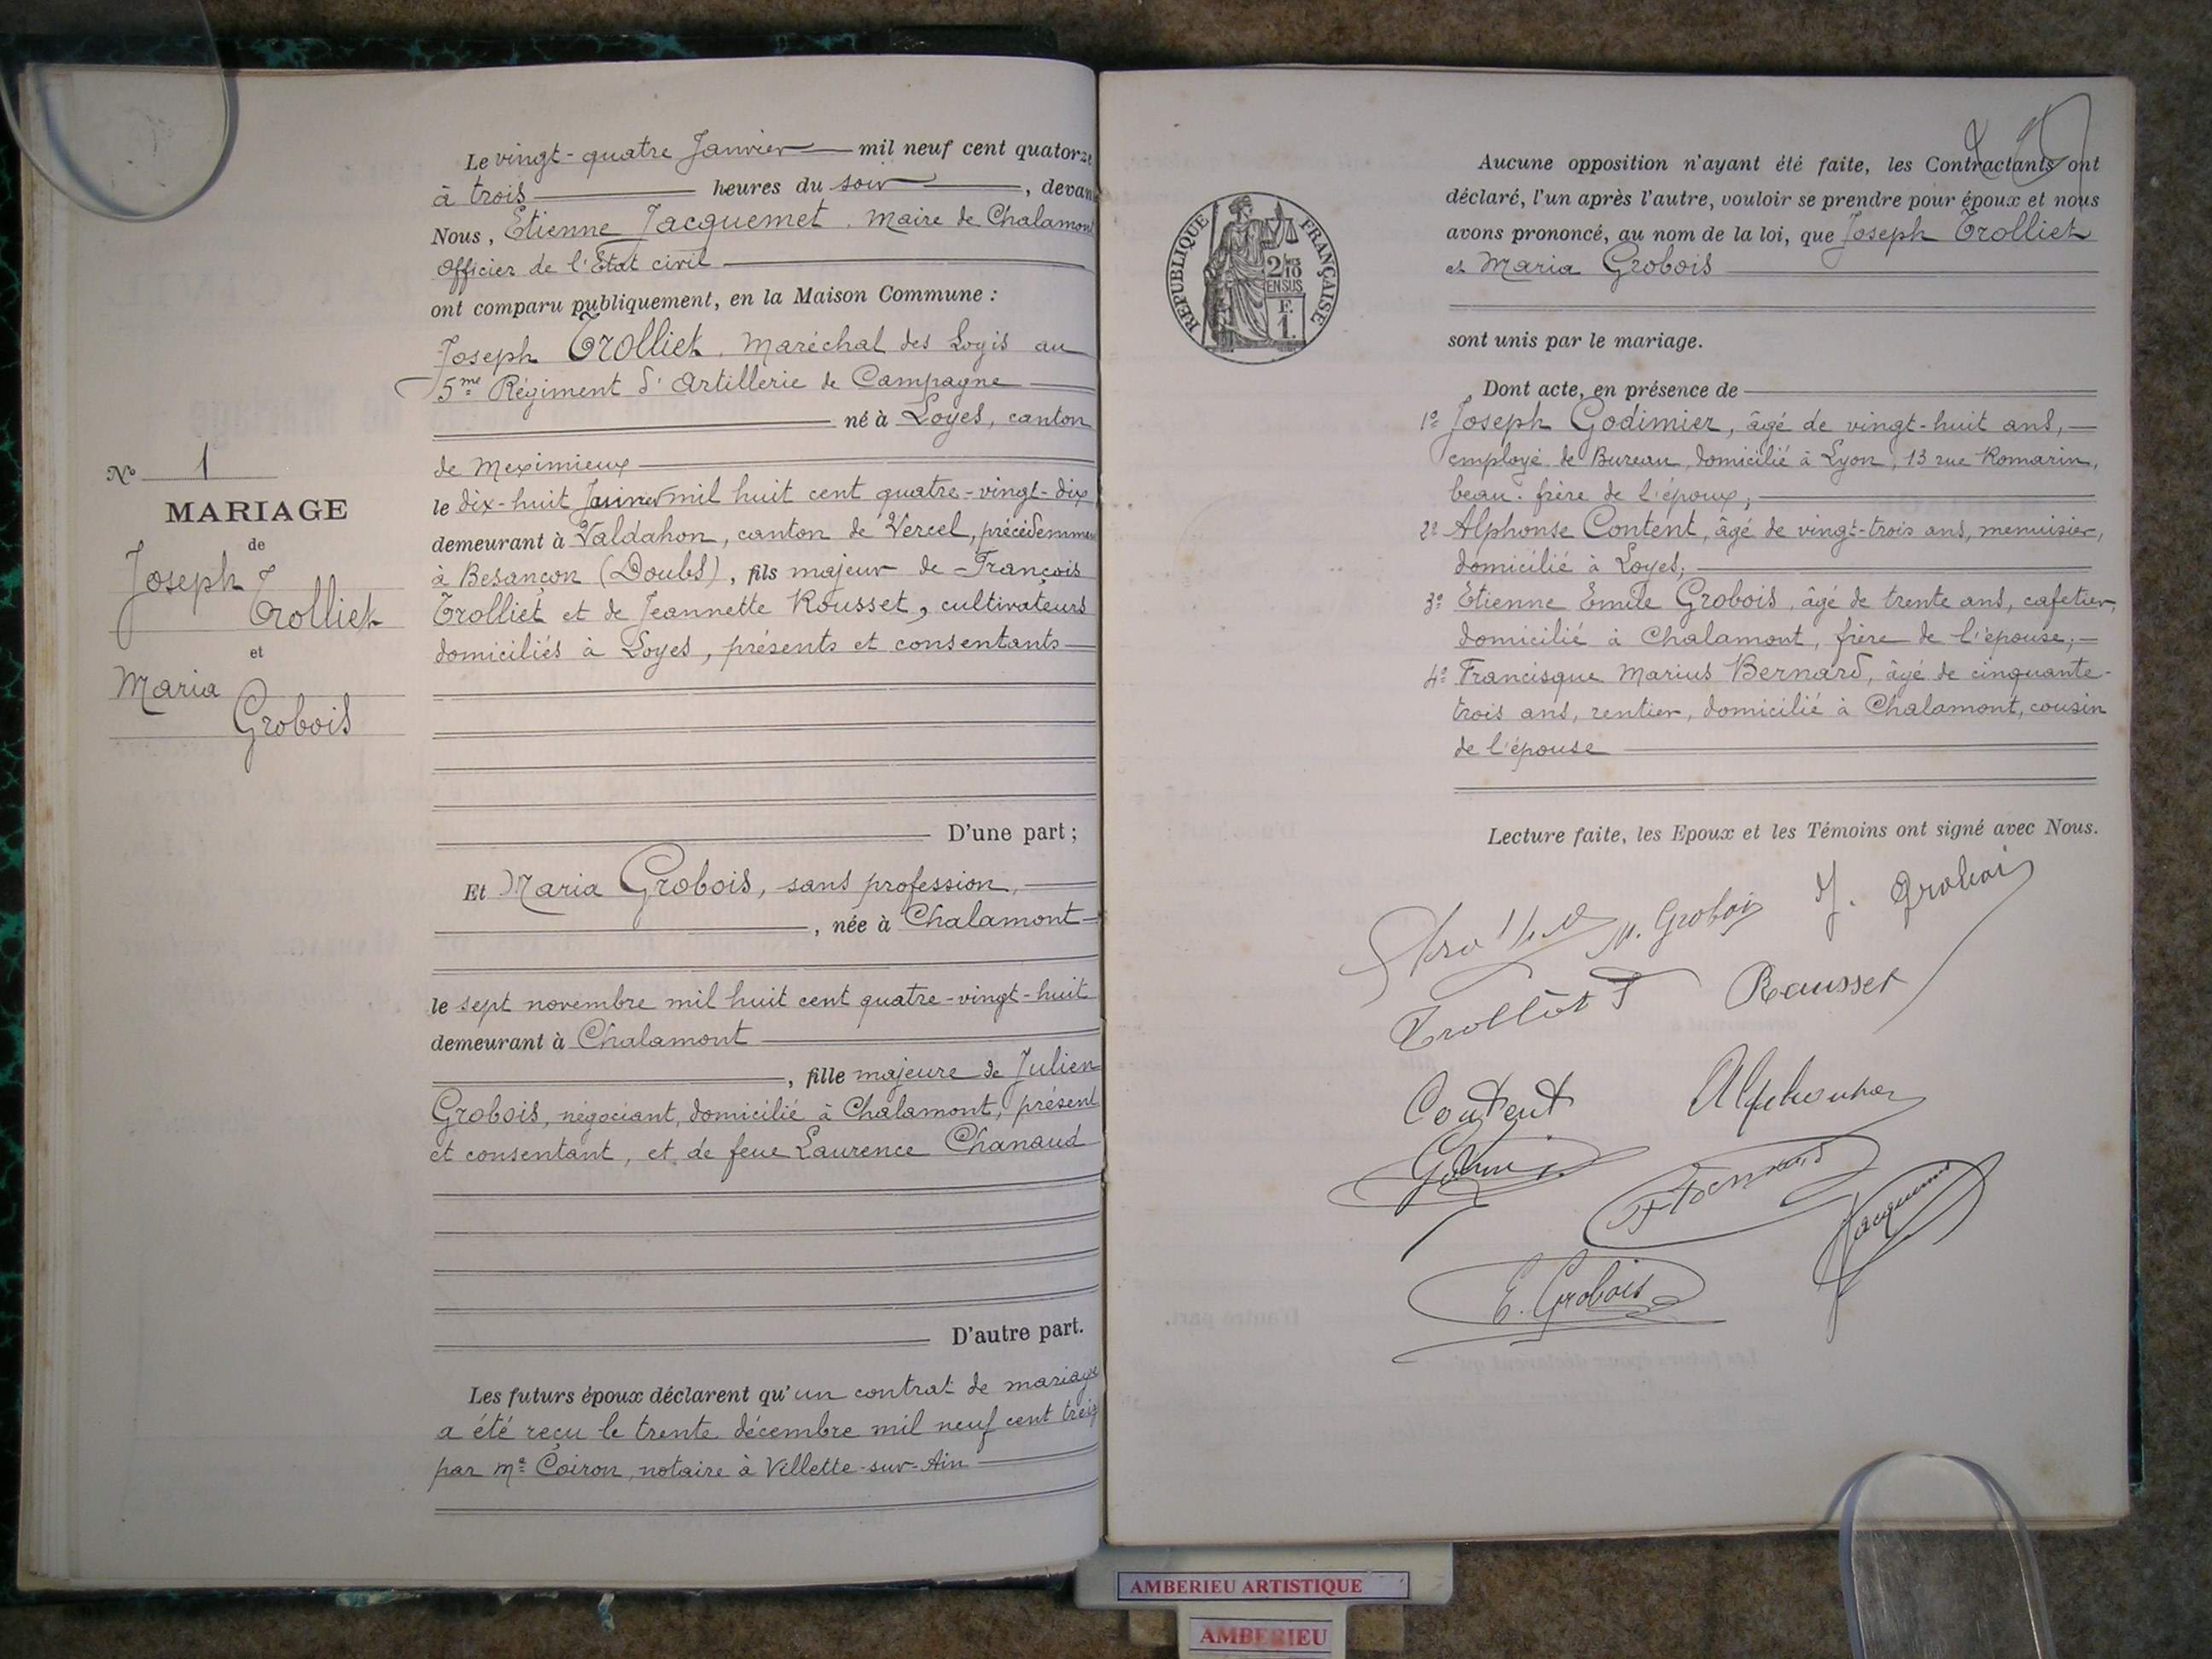 Le vingt-quatre Janvier mil neuf cent quatorze
à trois heures du soir, devant
Nous, Etienne Jacquemet, Maire de Chalamont
Officier de l'Etat civil
ont comparu publiquement, en la Maison Commune :
Joseph Trolliet, Maréchal des Logis au
5me Régiment d'Artillerie de Campagne
né à Loyes, canton
de Meximieux
le dix-huit Janvier mil huit cent quatre-vingt-dix
demeurant à Valdahon, canton de Vercel, précédemment
à Besançon (Doubs), fils majeur de François
Trolliet et de Jeannette Rousset, cultivateurs
domiciliés à Loyes, présents et consentants
No 1
MARIAGE
de
Joseph
Trolliet
et
Maria
Grobois
D'une part ;
Et Maria Grobois, sans profession,
, née à Chalamont
le sept novembre mil huit cent quatre-vingt-huit
demeurant à Chalamont
, fille majeure de Julien
Grobois, négociant, domicilié à Chalamont, présent
et consentant, et de feue Laurence Chanaud
D'autre part.
Les futurs époux déclarent qu'un contrat de mariage
a été reçu le trente décembre mil neuf cent treize
par Me Coiron, notaire à Villette-sur-Ain
REPUBLIQUE FRANÇAISE
2/10
EN SUS
F.
1.
Aucune opposition n'ayant été faite, les Contractants ont
déclaré, l'un après l'autre, vouloir se prendre pour époux et nous
avons prononcé, au nom de la loi, que Joseph Trolliet
et Maria Grobois
sont unis par le mariage.
Dont acte, en présence de
1º Joseph Godimier, âgé de vingt-huit ans,
employé de Bureau, domicilié à Lyon, 13 rue Romarin,
beau-frère de l'époux;
2º Alphonse Content, âgé de vingt-trois ans, menuisier,
domicilié à Loyes;
3º Etienne Emile Grobois, âgé de trente ans, cafetier,
domicilié à Chalamont, frère de l'épouse;
4º Francisque Marius Bernard, âgé de cinquante-
trois ans, rentier, domicilié à Chalamont, cousin
de l'épouse
Lecture faite, les Epoux et les Témoins ont signé avec Nous.
M. Grobois J. Grobois
Rousset
Content Alphonse
Jacquemet
E. Grobois
AMBERIEU ARTISTIQUE
AMBERIEU